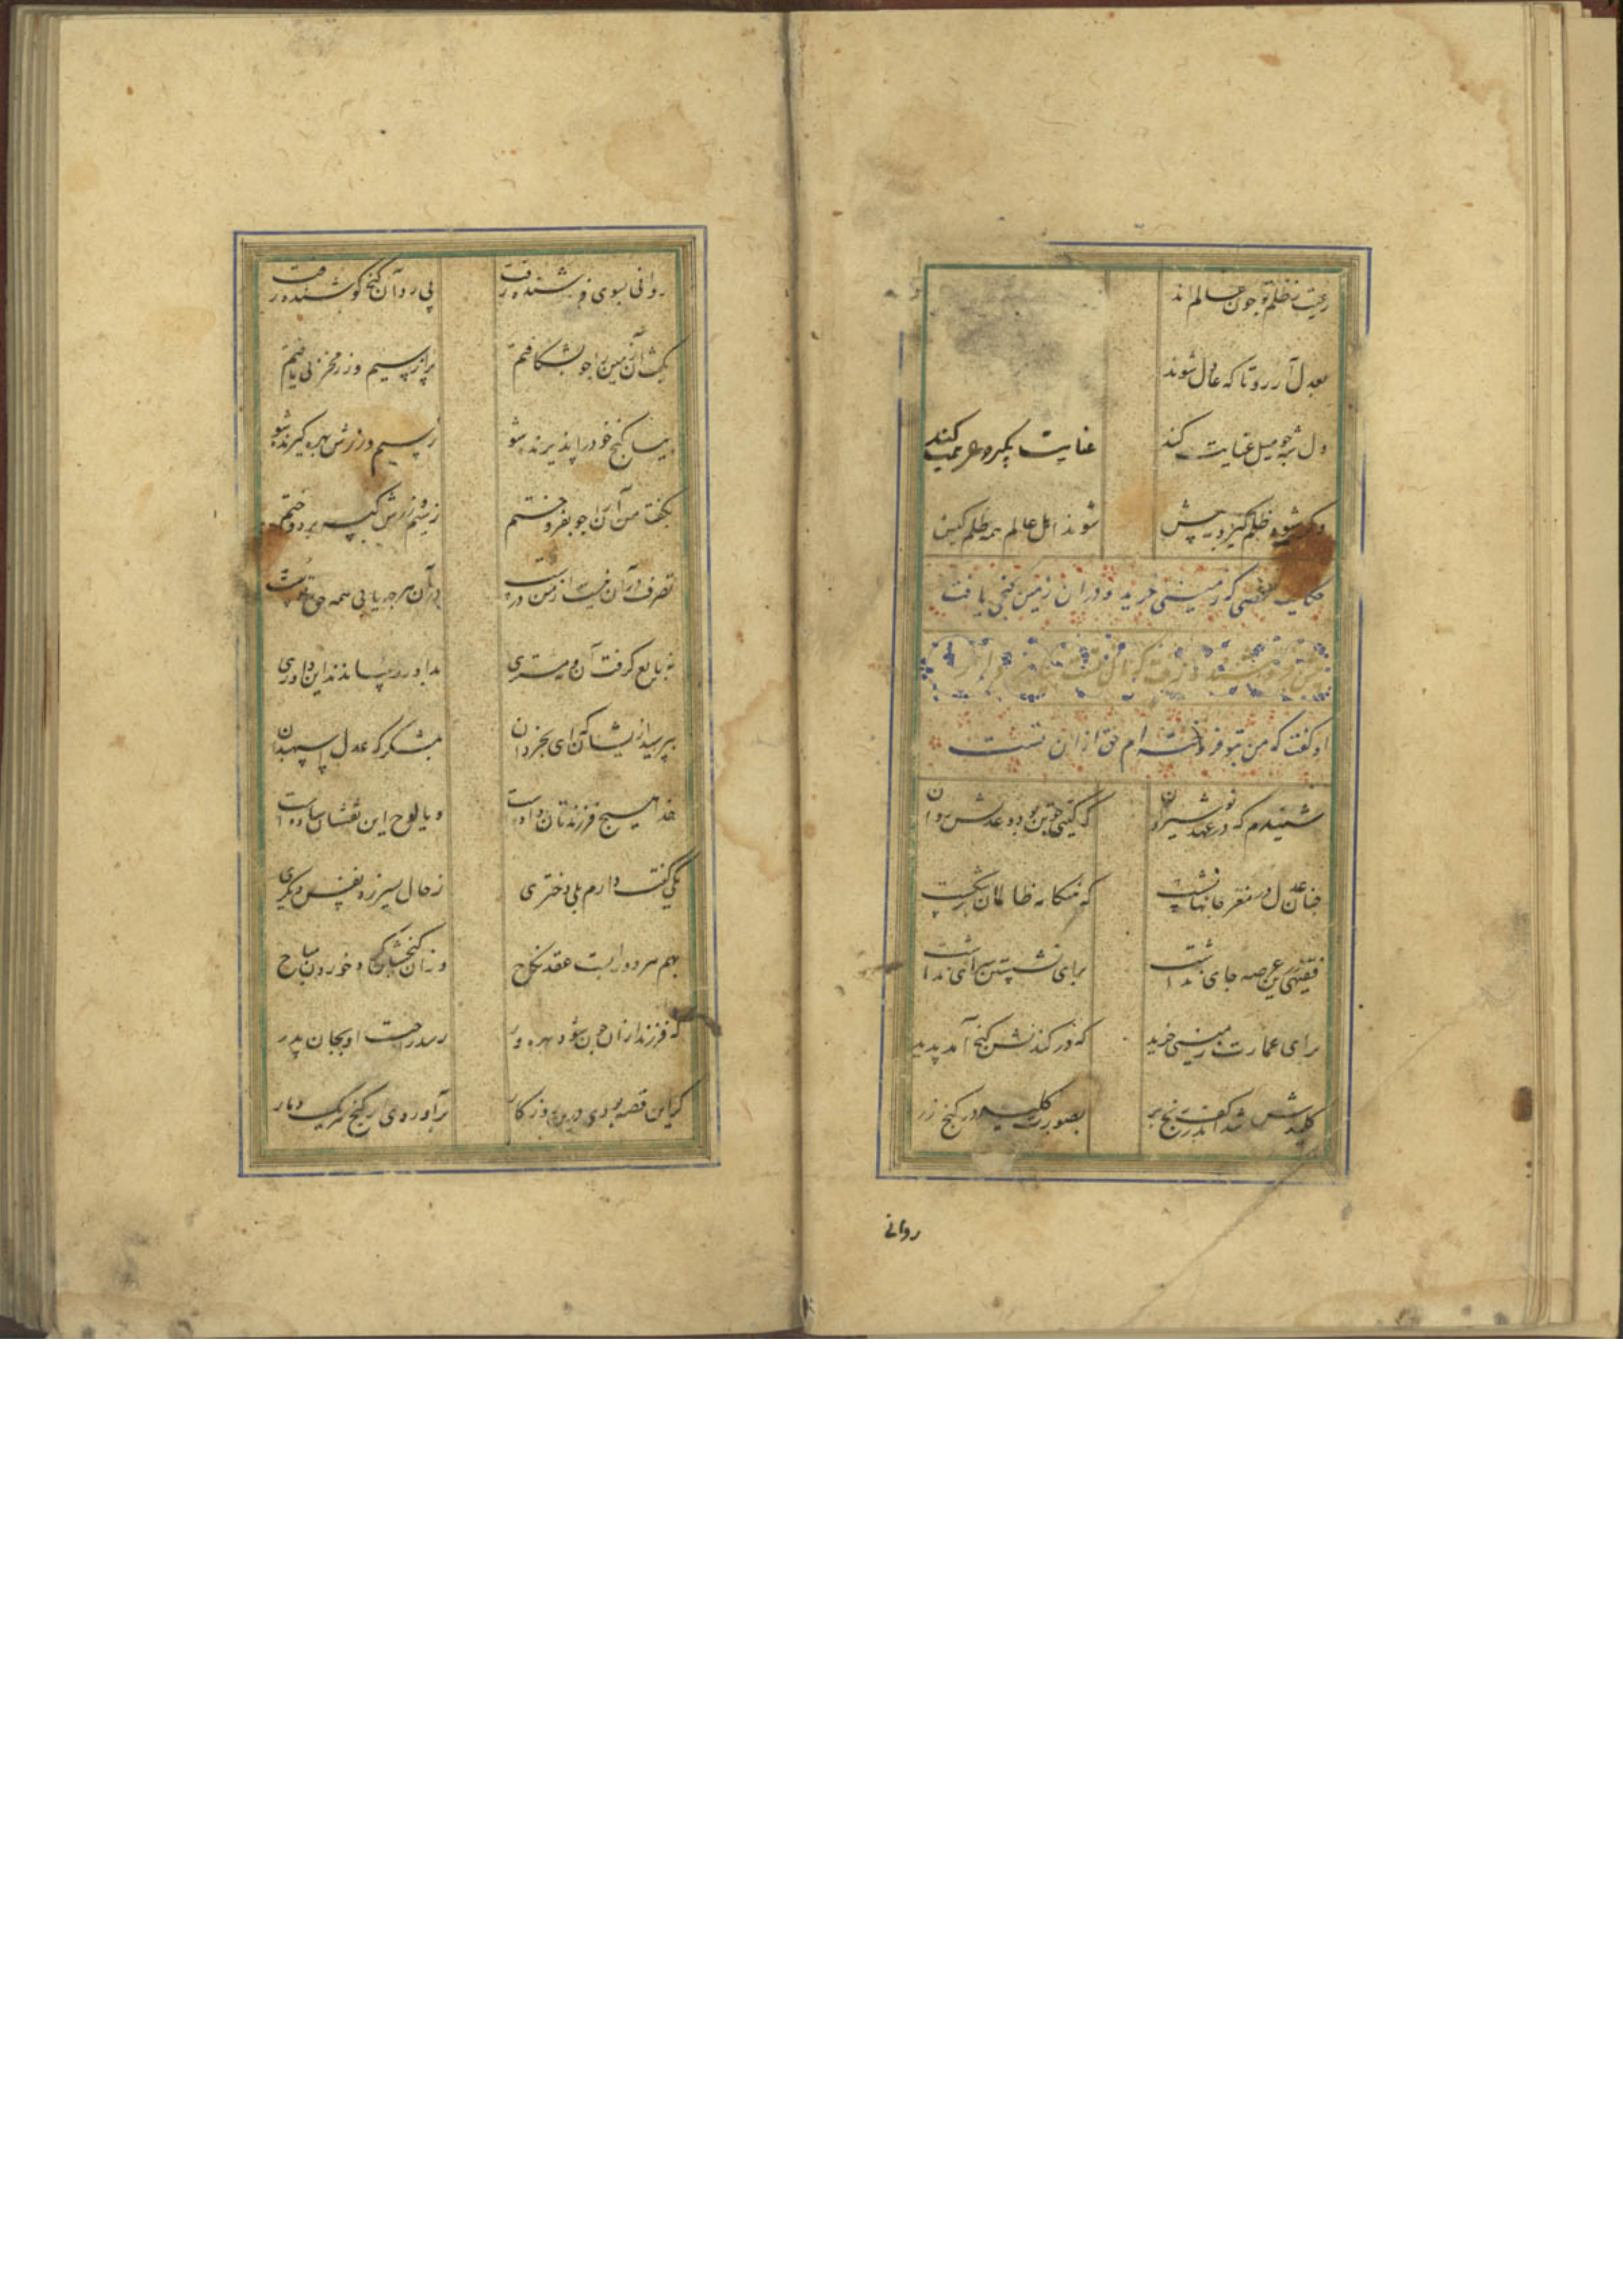 رعیت ز ظلم تو چون عالم‌اند
بعدل آر رو تا که عادل شوند
دل شه چو میل عنایت کند عنایت بگیرد رعیت کند
وگر شیوه ظلم گیرد به پیش شوند اهل عالم همه ظلم کیش
حکایت شخصی که زمینی خرید و در آن زمین گنجی یافت
او گفت که من بتو فروخته‌ام حق از آن تست
شنیدم که در عهد نوشیروان که گیتی چو تن بود و عدلش روان
چنان عدل در مغز جانها نشست که هنگامه ظالمان برشکست
فقیهی درین عرصه جای نداشت برای نشستن سرای نداشت
برای عمارت زمینی خرید که در کندنش گنج آمد پدید
کلیدش شد اندر کف رنج بر بصورت کلید در گنج زر
روانی
روانی بسوی فروشنده رفت پی رد آن گنج کوشنده رفت
بگفت آن زمین را چو بشکافتم پر از سیم و زر مخزنی یافتم
بیا گنج خود را پذیرنده شو ز سیم و زرش بهره گیرنده شو
بگفتا من آن را چو بفروختم ز سیم و زرش کیسه بردوختم
تصرف در آن نیست از من درست در آن هر چه یابی همه حق تست
نه بایع گرفت آن نه مشتری بداور رساندند این داوری
بپرسید ازیشان که ای بخردان
خدا هیچ فرزندتان داده است و یا لوح ازین نقشتان ساده است
یکی گفت دارم بلی دختری ز حال پسر زد نفس دیگری
بهم هر دو را بست عقد نکاح وز آن گنجشان کرد خوردن مباح
که فرزند از آن چون شود بهره‌ور رسد راحت او بجان پدر
گر این قصه بودی درین روزگار برآوردی از گنج هر یک دمار